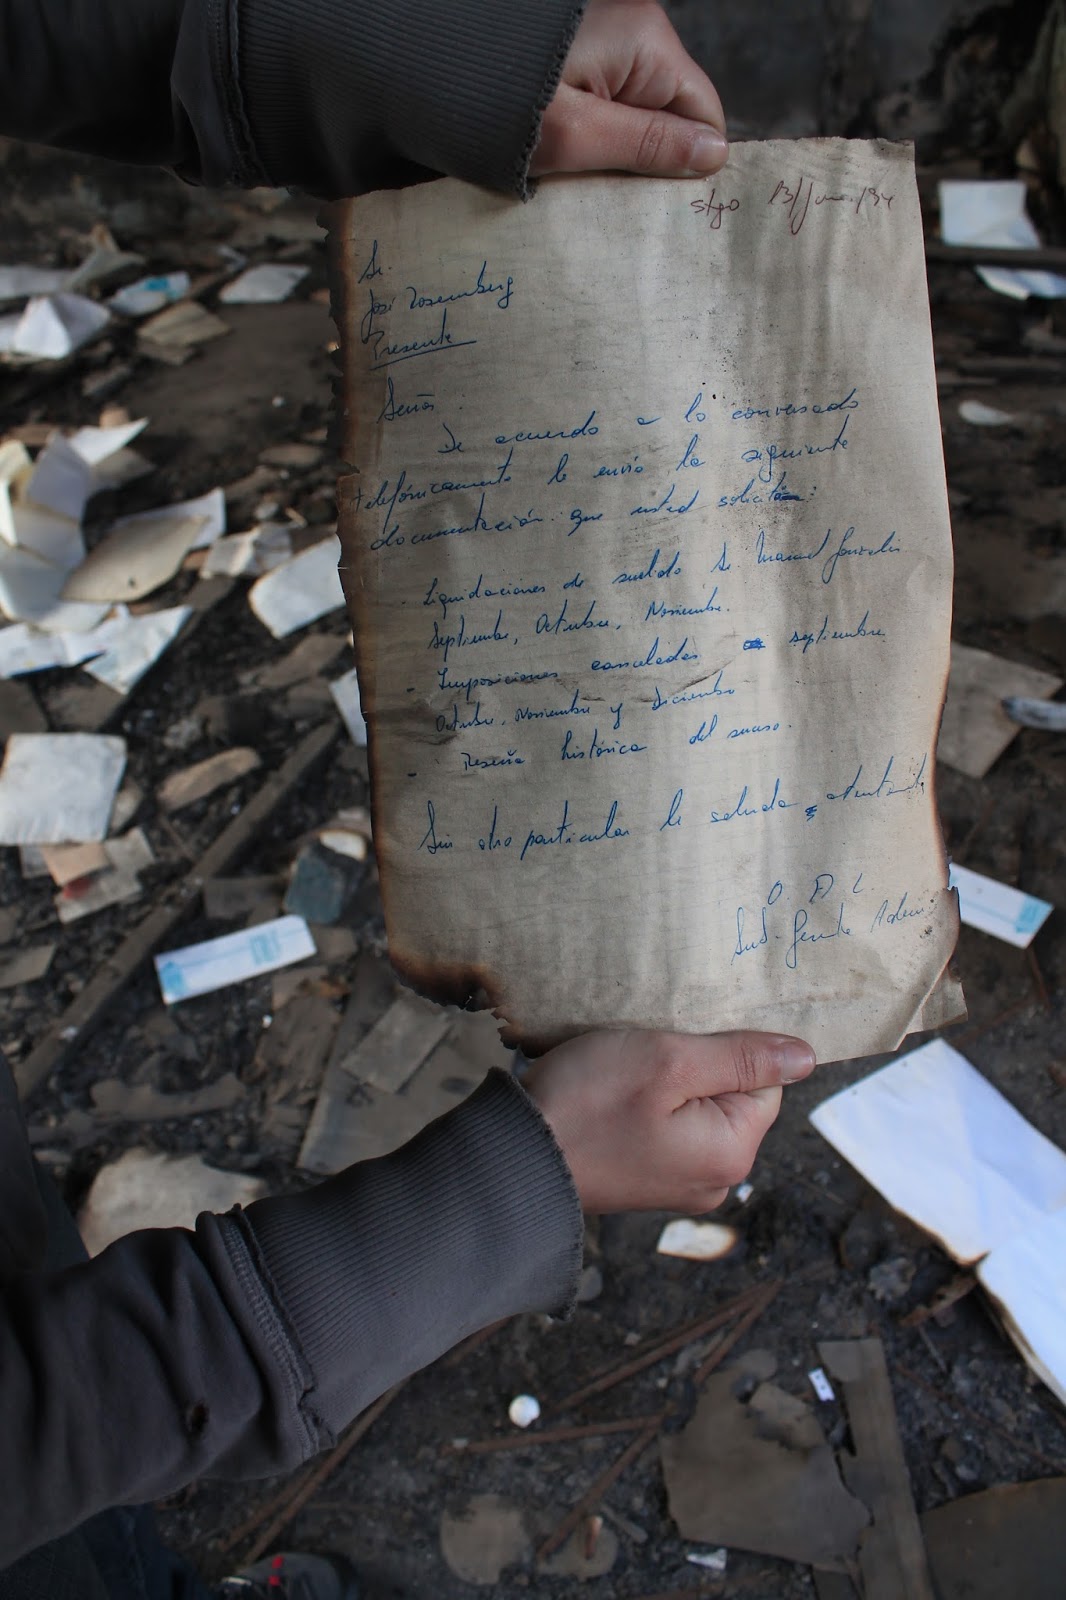 Stgo 13/Jun./94
Sr.
José Rosemberg
Presente
Señor.
De acuerdo a lo conversado
telefónicamente le envío la siguiente
documentación que usted solicitó:
- Liquidaciones de sueldo Sr. Manuel González
Septiembre, Octubre, Noviembre.
- Imposiciones canceladas septiembre
Octubre, Noviembre y Diciembre
- Reseña histórica del suceso.
Sin otro particular le saluda atentamente
O. A. L.
Sub-Gerente Adm